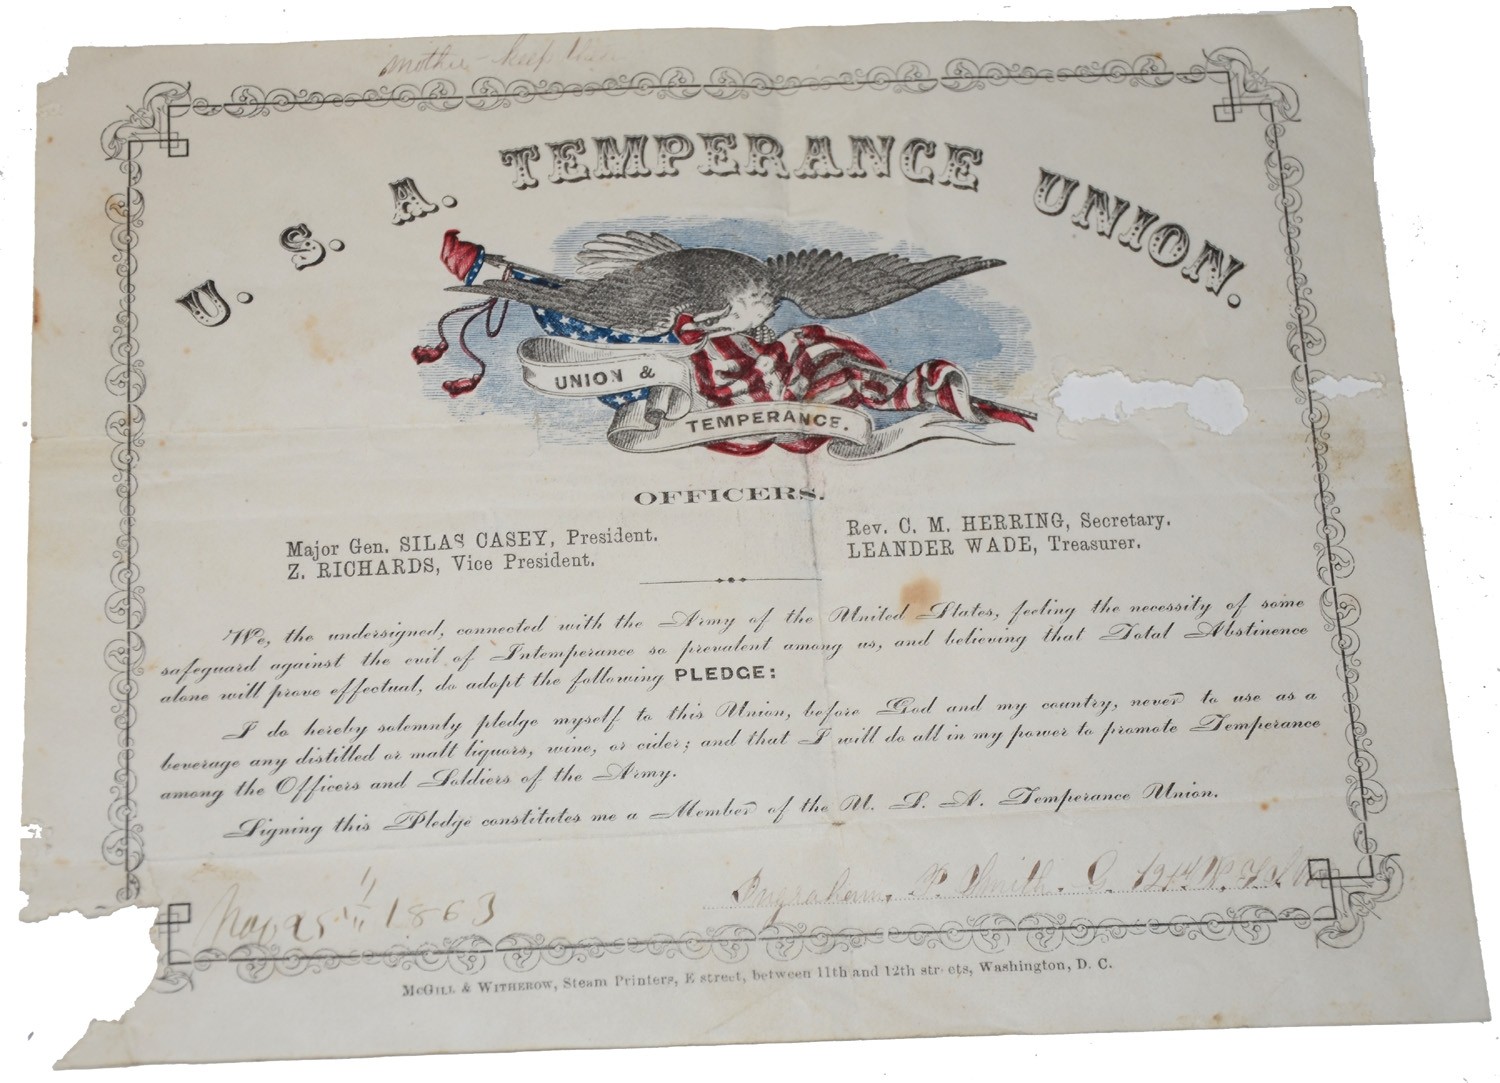 mother keep
U. S. A. TEMPERANCE UNION.
UNION &
TEMPERANCE.
OFFICERS.
Major Gen. SILAS CASEY, President.
Z. RICHARDS, Vice President.
Rev. C. M. HERRING, Secretary.
LEANDER WADE, Treasurer.
We, the undersigned, connected with the Army of the United States, feeling the necessity of some
safeguard against the evil of Intemperance so prevalent among us, and believing that Total Abstinence
alone will prove effectual, do adopt the following PLEDGE:
I do hereby solemnly pledge myself to this Union, before God and my country, never to use as a
beverage any distilled or malt liquors, wine, or cider; and that I will do all in my power to promote Temperance
among the Officers and Soldiers of the Army.
Signing this Pledge constitutes me a Member of the U. S. A. Temperance Union.
Ingraham P Smith. G. 124
1863
McGILL & WITHEROW, Steam Printers, E street, between 11th and 12th streets, Washington, D. C.